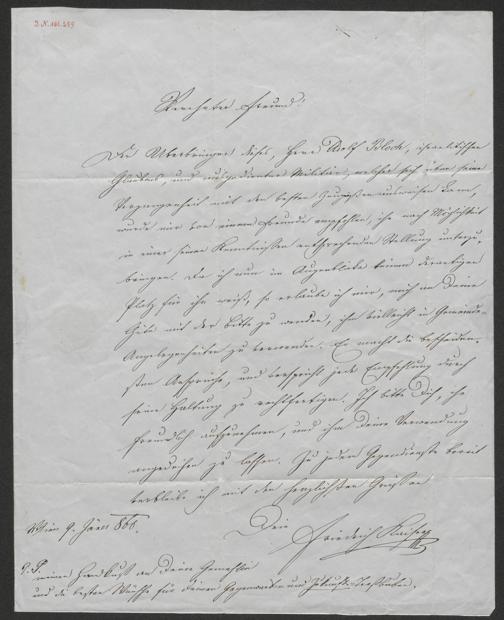 I.N. 161.259
Verehrter Freund!
Der Überbringer dieses, Herr Adolf Bloch, israelitischen
Glaubens, und ausgedienter Militär, welcher sich über seine
Vergangenheit mit den besten Zeugnißen ausweisen kann,
wurde mir von einem Freunde empfohlen, ihn nach Möglichkeit
in einer seinen Kenntnißen entsprechenden Stellung unterzu-
bringen. Da ich nun im Augenblicke keinen derartigen
Platz für ihn weiß, so erlaube ich mir, mich an Deine
Güte mit der Bitte zu wenden, ihn vielleicht in Gemeinde-
Angelegenheiten zu verwenden. Er macht die bescheiden-
sten Ansprüche, und verspricht jede Empfehlung durch
seine Haltung zu rechtfertigen. Ich bitte Dich, ihn
freundlich aufzunehmen, und ihm Deine Verwendung
angedeihen zu lassen. Zu jedem Gegendienste bereit
verbleibe ich mit den herzlichsten Grüßen
Dein
Wien 9. Jänner
Friedrich Kaiser
P.S.
meinen Handkuß an Deine Gemahlin
und die besten Wünsche für Deinen Gegenwarts und Zukunfts